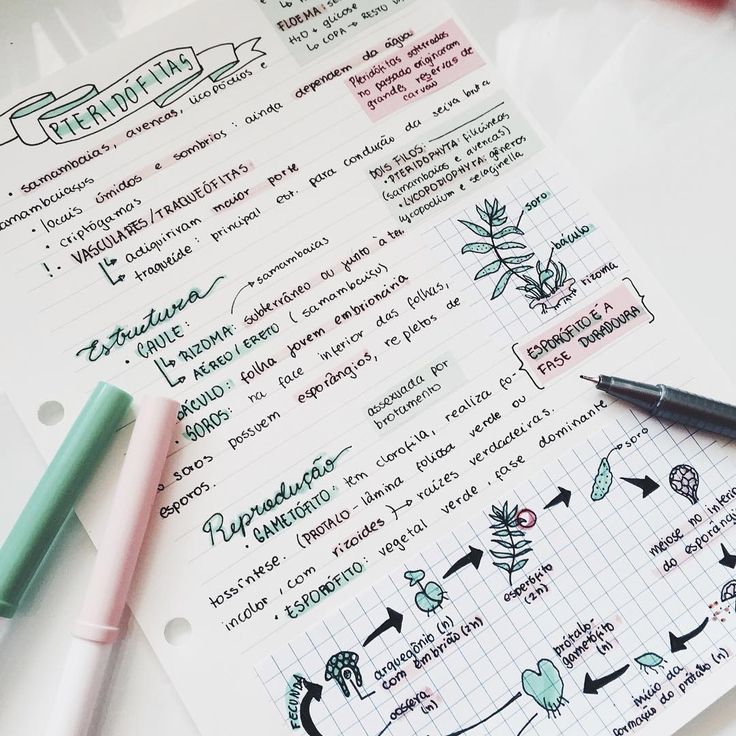 FLOEMA:
H₂O + glicose
↳ COPA → RESTO
PTERIDÓFITAS
• samambaias, avencas, licopódios e
samambaiaçus
Pteridófitas soterradas
no passado originaram
grandes reservas de
carvão
• locais úmidos e sombrios: ainda dependem da água
• criptógamas
!. VASCULARES/TRAQUEÓFITAS
↳ adiquiriram maior porte
↳ traqueíde: principal est. para condução da seiva bruta
DOIS FILOS:
• PTERIDOPHYTA: filicíneas
(samambaias e avencas)
• LYCOPODIOPHYTA: gêneros
lycopodium e selaginella
soro
báculo
rizoma
Estrutura
• CAULE:
samambaias
↳ RIZOMA: subterrâneo ou junto à ter.
↳ AÉREO/ERETO (samambaiaçu)
BÁCULO: folha jovem embrionária
• SOROS: na face inferior das folhas.
soros possuem esporângios, repletos de
esporos.
ESPORÓFITO É A
FASE DURADOURA
assexuada por
brotamento
Reprodução
• GAMETÓFITO: tem clorofila, realiza fo-
tossíntese. (PROTALO - lâmina foliosa verde ou
incolor, com rizoides) → raízes verdadeiras.
• ESPORÓFITO: vegetal verde, fase dominante
soro
meiose no interior
do esporângio
esporófito
(2n)
arquegônio (n)
com embrião (2n)
FECUNDA
oosfera
(n)
prótalo-
gametófito
(n)
início da
formação do prótalo (n)